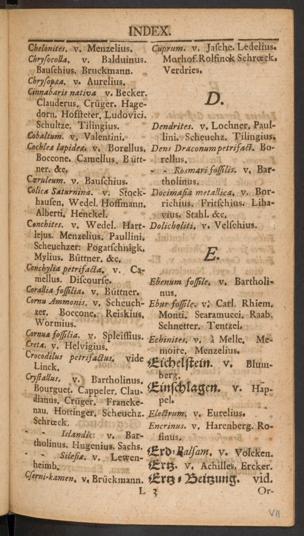 INDEX.
Chelonites. v. Menzelius.
Chrysocolla. v. Balduinus.
Bauschius. Bruckmann.
Chrysopæa. v. Aurelius.
Cinnabaris nativa v. Becker.
Clauderus, Crüger. Hage-
dorn. Hofsteter, Ludovici.
Schultze, Tilingius.
Cobaltum. v. Valentini.
Cochleæ lapideæ. v. Borellus,
Boccone. Camellus, Bütt-
ner. &c.
Cæruleum. v. Bauschius.
Colica Saturnina. v. Stock-
hausen, Wedel. Hoffmann,
Alberti, Henckel.
Conchites. v. Wedel. Hart-
lejus. Menzelius, Paullini,
Scheuchzer: Pogatschnigk,
Mylius. Büttner. &c.
Conchylia petrifacta. v. Ca-
mellus. Discourse.
Corallia fossilia. v. Büttner.
Cornu Ammonis. v. Scheuch-
zer, Boccone. Reiskius,
Wormius.
Cornua fossilia. v. Spleissius.
Creta. v. Helvigius.
Crocodilus petrifactus. vide
Linck.
Crystallus. v. Bartholinus.
Bourguet. Cappeler, Clau-
dianus, Crüger. Francke-
nau. Hottinger, Scheuchz.
Schrœck.
- Islandic: v. Bar-
tholinus. Hugenius. Sachs.
- Silesiæ. v. Lewen-
heimb.
Cserni-kamen. v. Brückmann.
Cuprum. v. Jasche. Ledelius.
Morhof. Rolfinck Schrœck.
Verdries.
D.
Dendrites. v. Lochner, Paul-
lini. Scheuchz. Tilingius.
Dens Draconum petrifact. Bo-
rellus.
- - Rosmari fossilis. v. Bar-
tholinus.
Docimasia metallica. v. Bor-
richius, Fritschius. Liba-
vius. Stahl. &c.
Dolicholiti. v. Velschius.
E.
Ebenum fossile. v. Bartholi-
nus.
Ebur fossile. v. Carl. Rhiem.
Monti. Scaramucci. Raab.
Schnetter. Tentzel.
Echinites. v. à Melle. Me-
moire. Menzelius.
Eichelstein. v. Blum-
berg.
Einschlagen. v. Hap-
pel.
Electrum. v. Eurelius.
Encrinus. v. Harenberg. Ro-
sinus.
Erd-Balsam. v. Volcken.
Ertz. v. Achilles, Ercker.
Ertz-Beitzung. vid.
L 3
Or-
VII